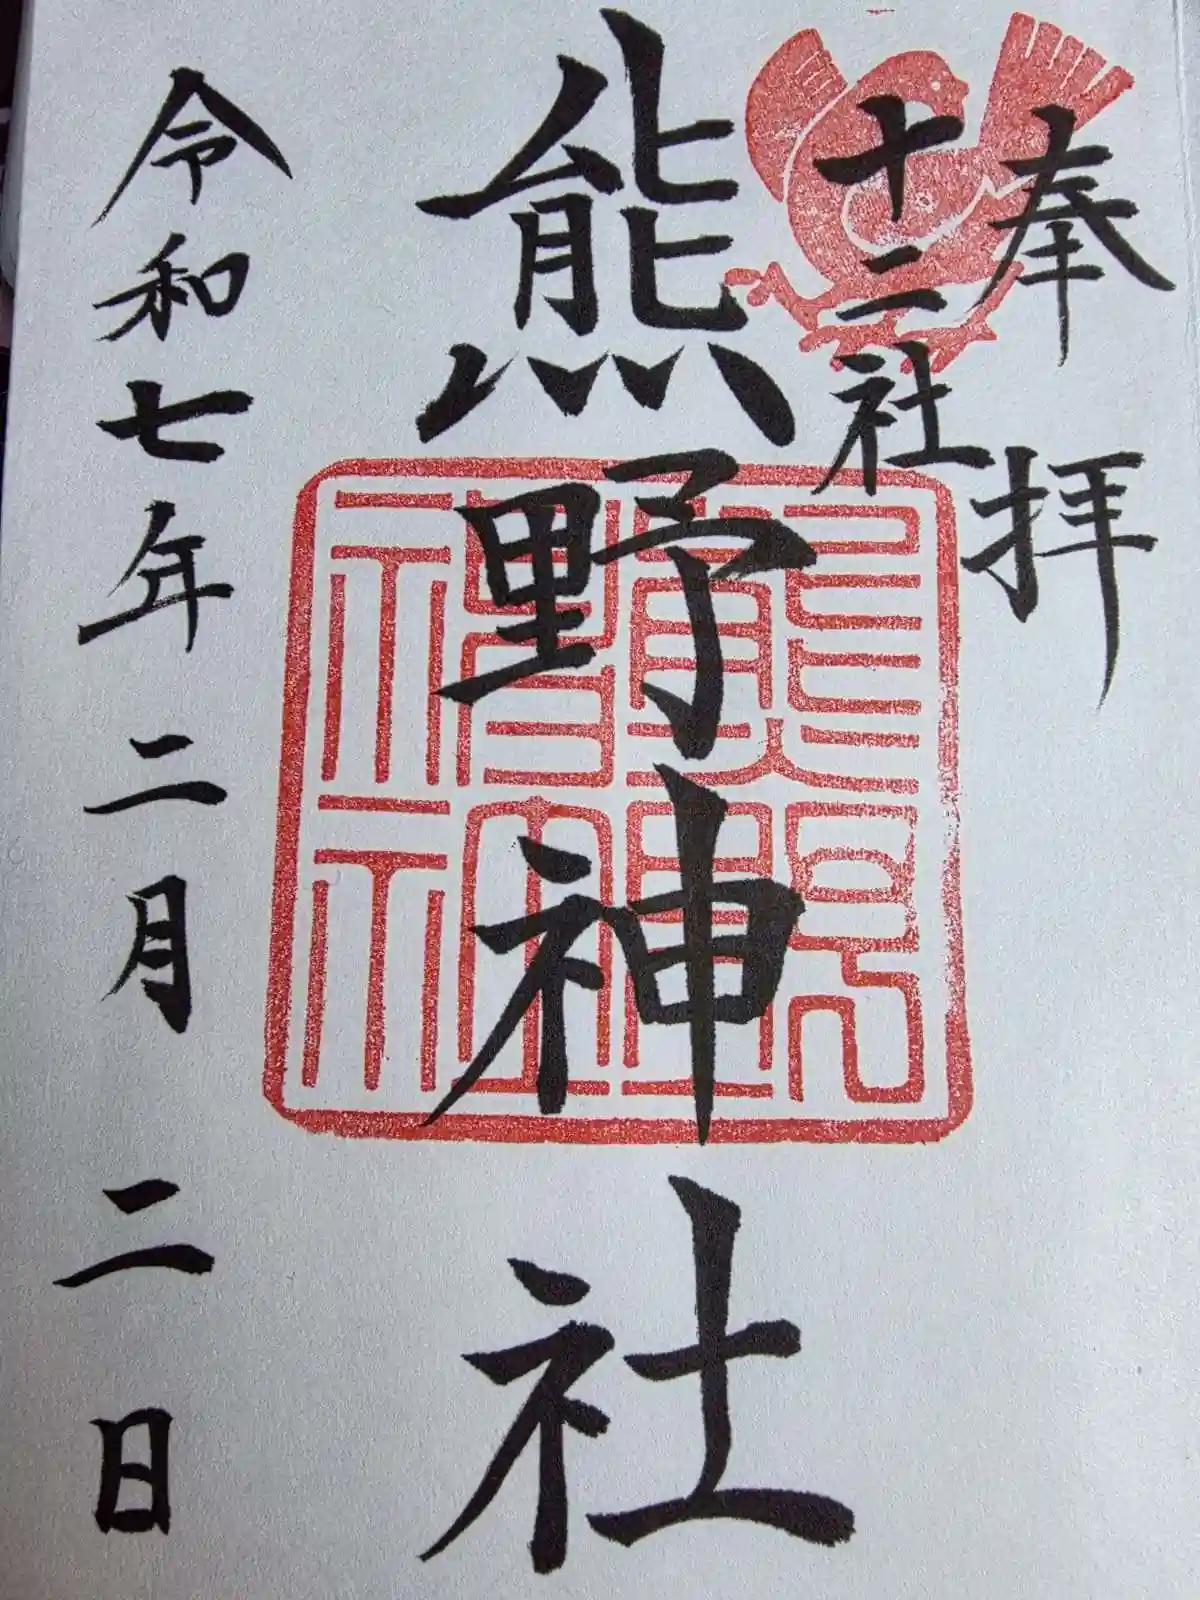 奉拝
十二社
熊野神社
令和七年二月二日